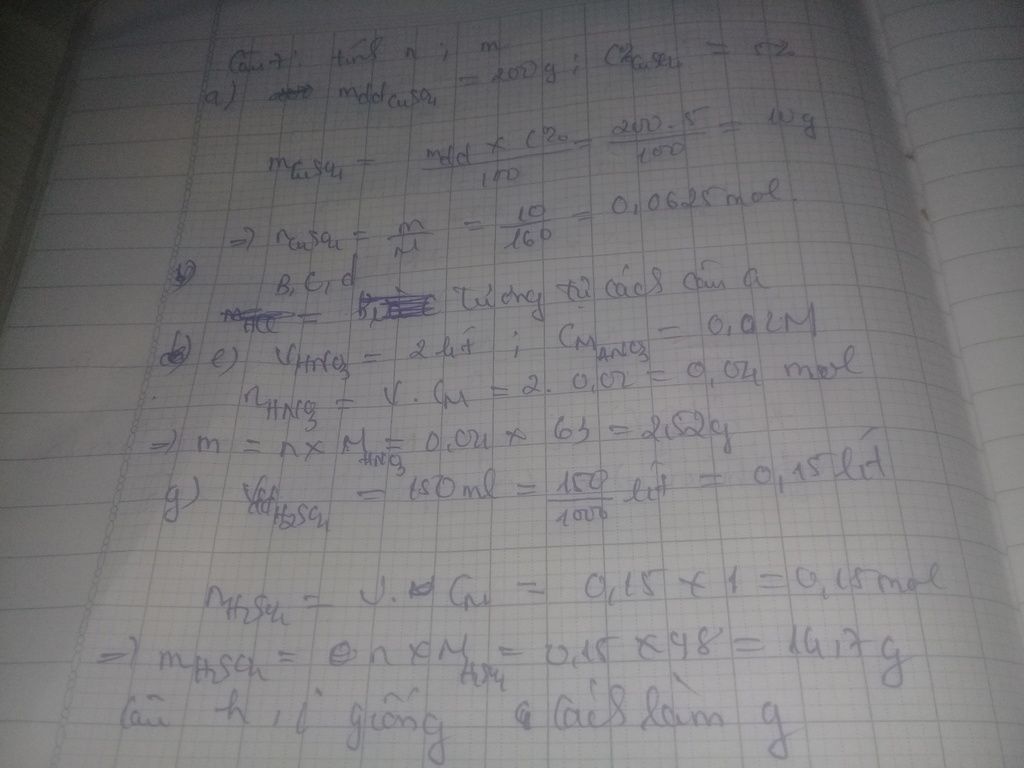 Câu 7: tính n ; m
a) mdd CuSO4 = 200g ; C% CuSO4 = 5%
mCuSO4 = mdd x C% / 100 = 200 . 5 / 100 = 10g
=> nCuSO4 = m / M = 10 / 160 = 0,0625 mol.
B, C, d tương tự cách câu a
e) VHNO3 = 2 lít ; CM HNO3 = 0,02M
nHNO3 = V . CM = 2 . 0,02 = 0,04 mol
=> m = n x MHNO3 = 0,04 x 63 = 2,52g
g) Vdd H2SO4 = 150 ml = 150 / 1000 lít = 0,15 lít
nH2SO4 = V . CM = 0,15 x 1 = 0,15 mol
=> mH2SO4 = n x MH2SO4 = 0,15 x 98 = 14,7 g
Câu h, i giống cách làm g